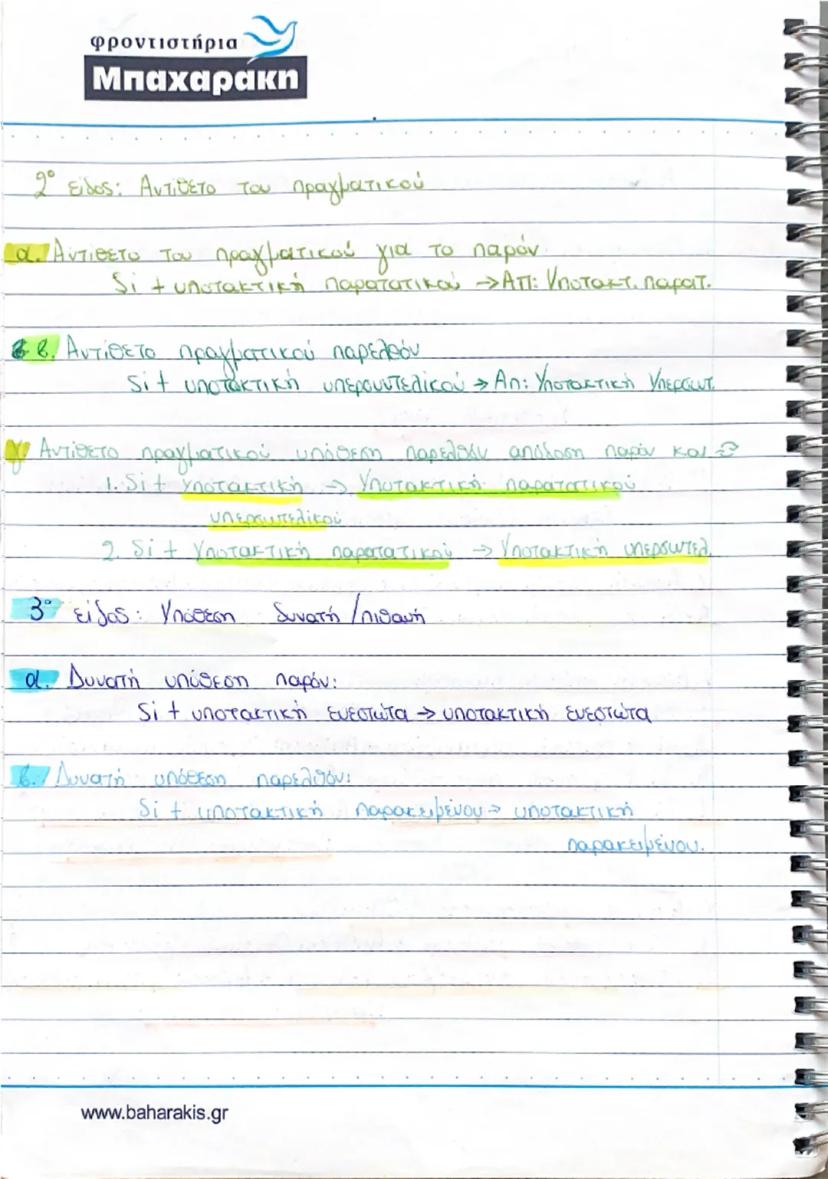 φροντιστήρια
Μπαχαράκη
2° είδος: Αντίθετο του πραγματικού
α. Αντίθετο του πραγματικού για το παρόν
Si + υποτακτική παρατατικού → Απ: Υποτακτ. παρατ.
β. Αντίθετο πραγματικού παρελθόν
Si + υποτακτική υπερσυντελικού → Απ: Υποτακτική Υπερσυντ.
γ. Αντίθετο πραγματικού υπόθεση παρελθόν απόδοση παρόν και
1. Si + Υποτακτική → Υποτακτική παρατατικού
υπερσυντελικού
2. Si + Υποτακτική παρατατικού → Υποτακτική υπερσυντελ.
3° είδος: Υπόθεση δυνατή/πιθανή
α. Δυνατή υπόθεση παρόν:
Si + υποτακτική ενεστώτα → υποτακτική ενεστώτα
β. Δυνατή υπόθεση παρελθόν:
Si + υποτακτική παρακειμένου → υποτακτική
παρακειμένου.
www.baharakis.gr